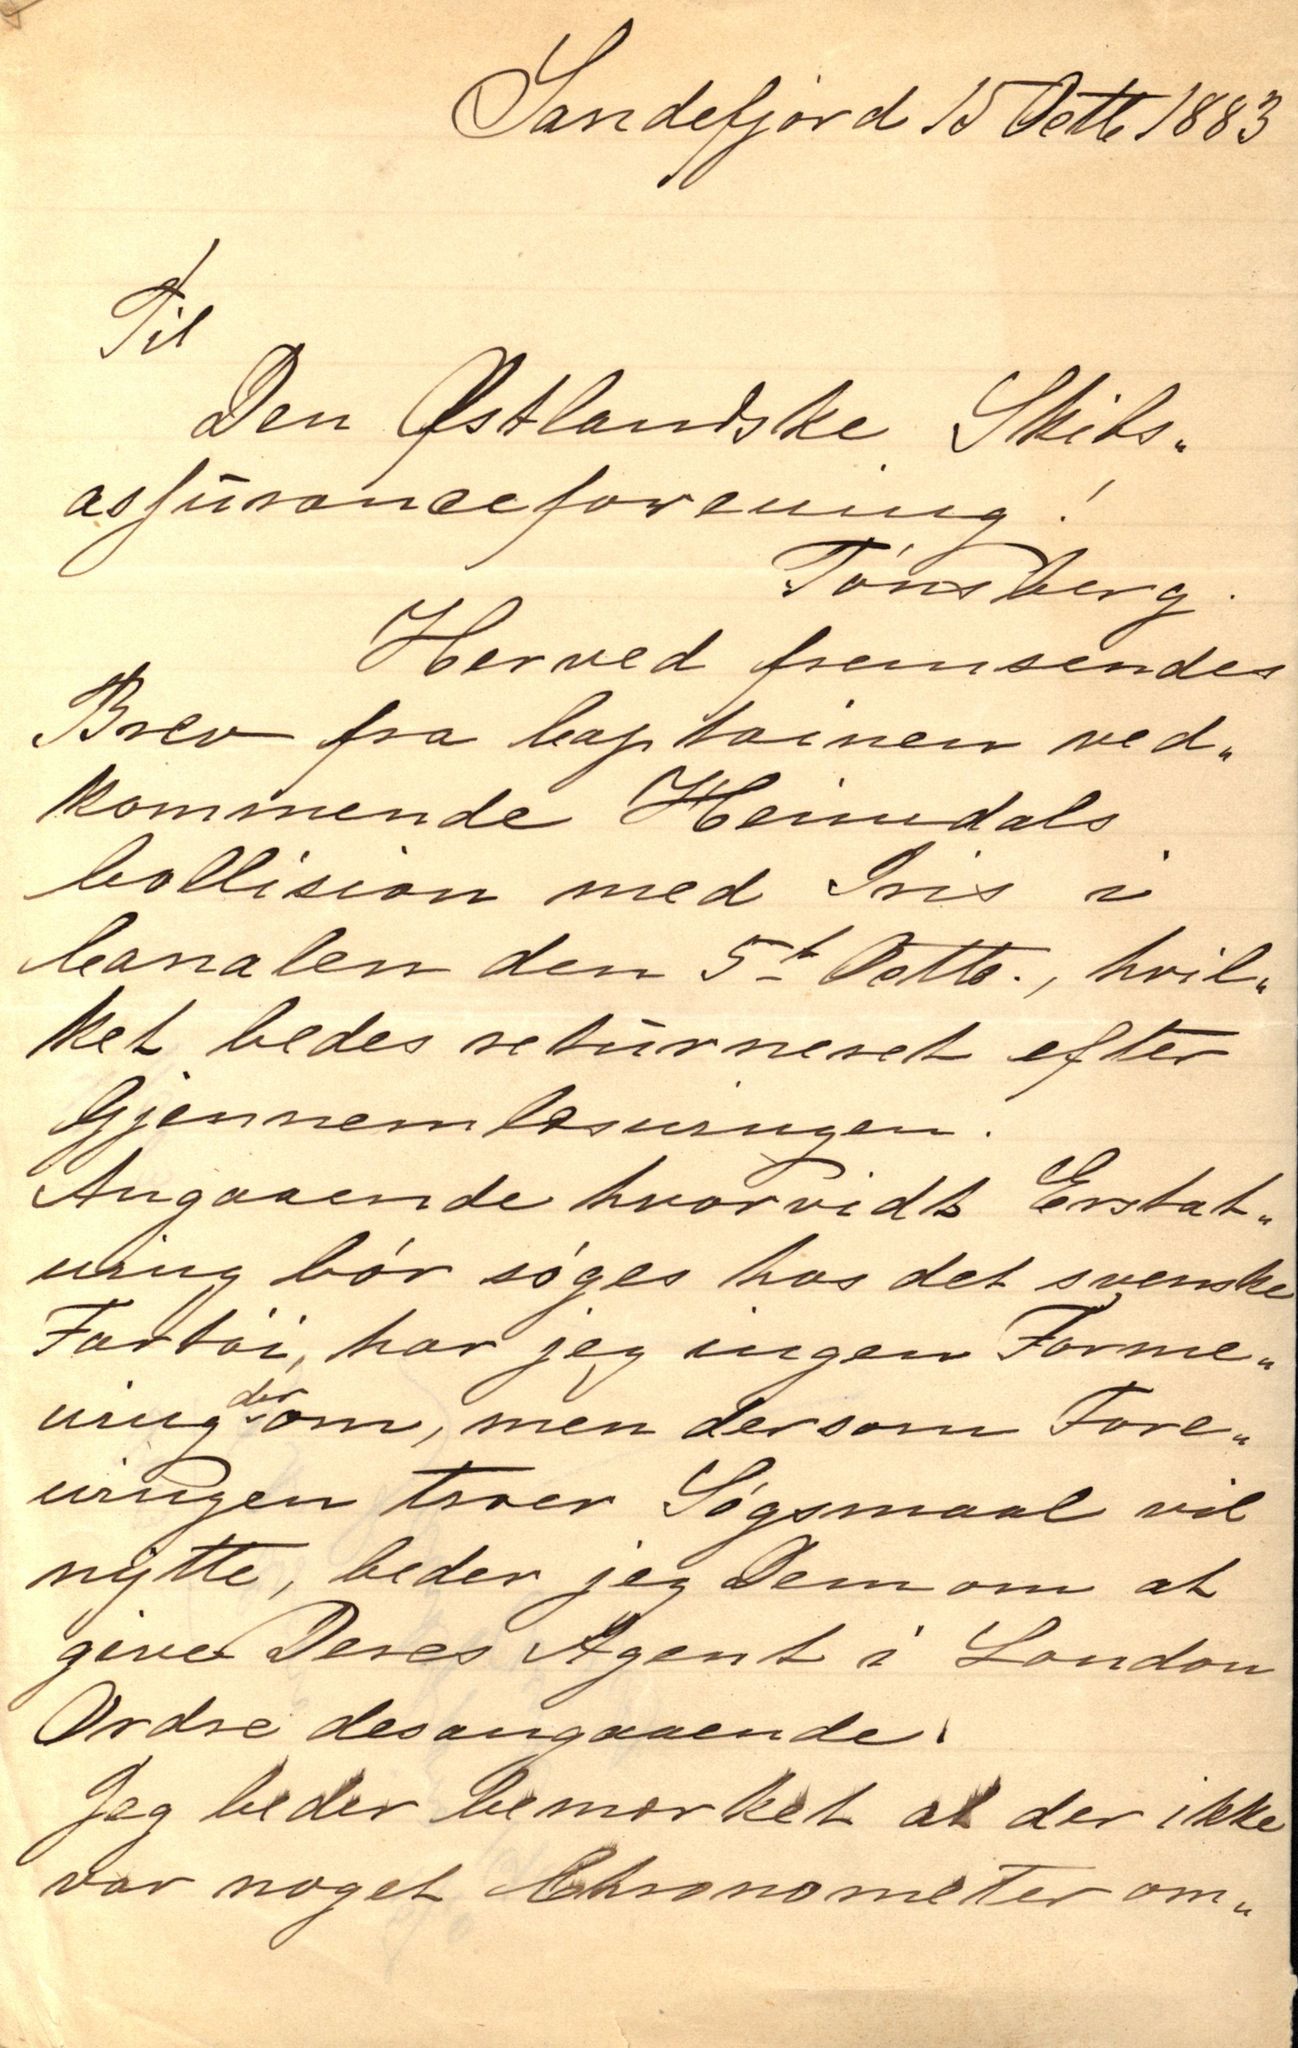 Sandefjord 15 Octb 1883
Til
Den Østlandske Skibs„
assuranceforening!
Tönsberg.
Herved fremsendes
Brev fra Captainen ved„
kommende Heimdals
Collision med Iris i
Canalen den 5t Octb., hvil„
ket bedes returneret efter
Gjennemlæsningen.
Angaaende hvorvidt Erstat„
ning bör söges hos det svenske
Fartöi, har jeg ingen Forme„
ning derom, men dersom Fore„
ningen troer Sögsmaal vil
nytte, beder jeg Dem om at
give Deres Agent i London
Ordre desangaaende.
Jeg beder bemærket at der ikke
var noget Chronometer om„